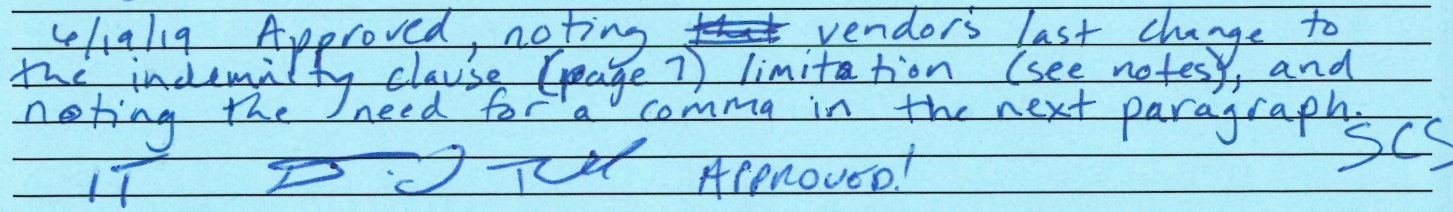 6/19/19 Approved, noting vendor's last change to
the indemnity clause (page 7) limitation (see notes), and
noting the need for a comma in the next paragraph.
SCS
IT APPROVED!